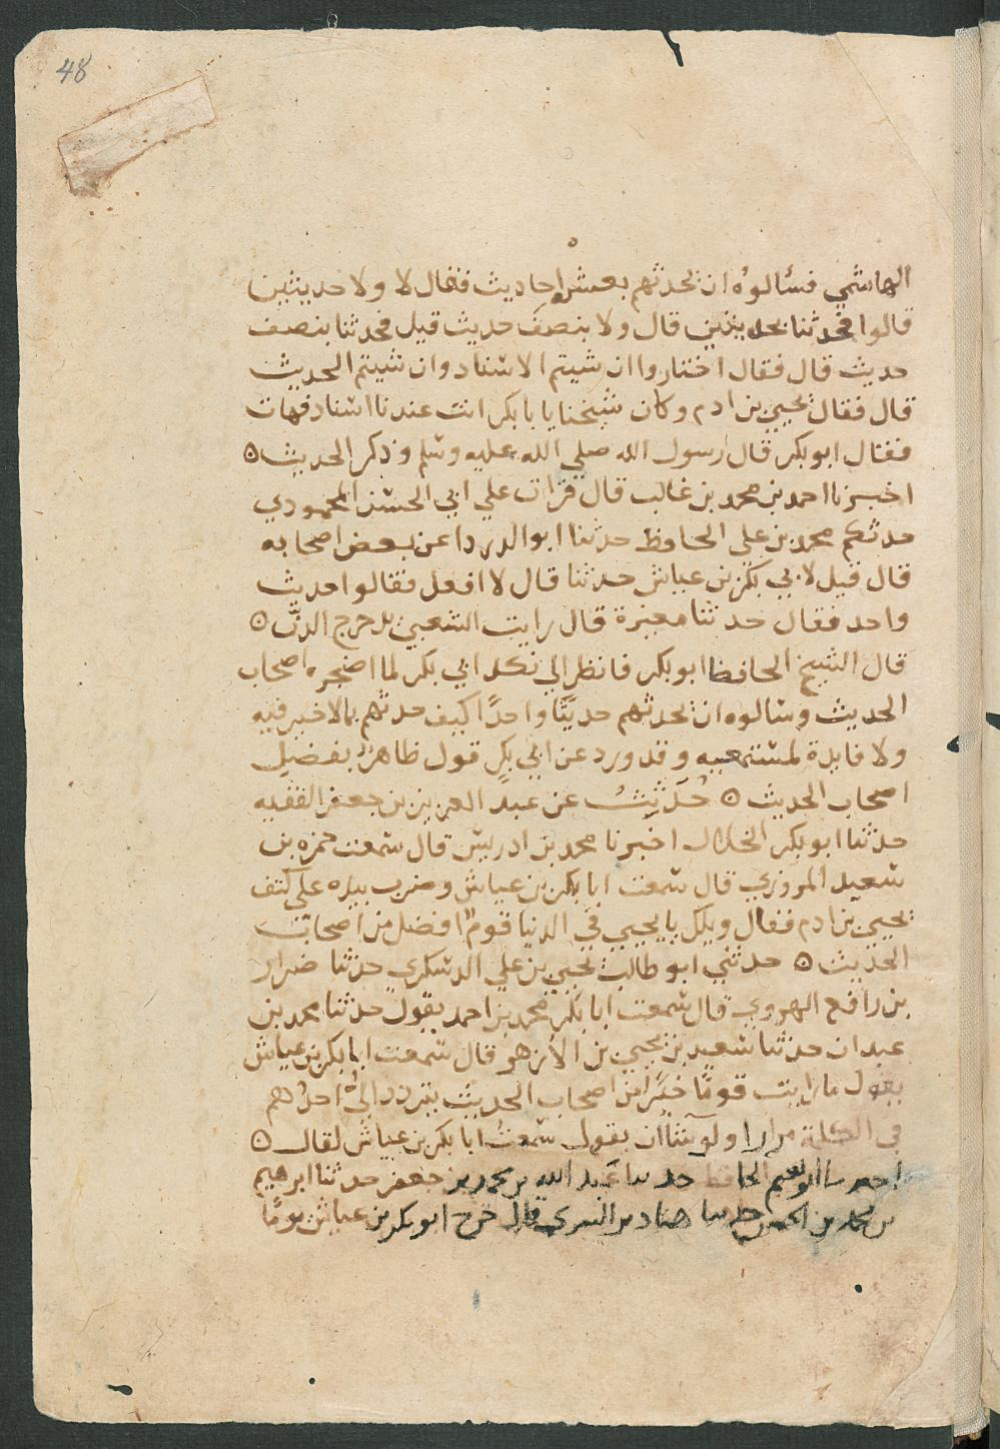 48
الهاشمي فسألوه ان يحدثهم بعشره احاديث فقال لا ولا حديثين
قالوا فحدثنا بحديثين قال ولا بنصف حديث قيل فحدثنا بنصف
حديث قال فقال اختاروا ان شيتم الاسناد وان شيتم الحديث
قال فقال يحيى بن ادم وكان شيخنا يا با بكر انت عندنا اسناد فهات
فقال ابو بكر قال رسول الله صلي الله عليه وسلم وذكر الحديث ٥
اخبرنا احمد بن محمد بن غالب قال قرات علي ابي الحسن المحمودي
حدثكم محمد بن علي الحافظ حدثنا ابو الدردا عن بعض اصحابه
قال قيل لابي بكر بن عياش حدثنا قال لا افعل فقالوا حديث
واحد فقال حدثنا مغيرة قال رايت الشعبي يدحرج الدن ٥
قال الشيخ الحافظ ابو بكر فانظر الي نكد ابي بكر لما اضجره اصحاب
الحديث وسالوه ان يحدثهم حديثًا واحدًا كيف حدثهم بما لا خير فيه
ولا فايدة لمستمعيه وقد ورد عن ابي بكر قول ظاهر بفضيل
اصحاب الحديث ٥ حُدّثت عن عبد العزيز بن جعفر الفقيه
حدثنا ابو بكر الخلال اخبرنا محمد بن ادريس قال سمعت حمزه بن
سعيد المروزي قال سمعت ابا بكر بن عياش وضرب بيده على كتف
يحيى بن ادم فقال ويلك يا يحيى في الدنيا قوم افضل من اصحاب
الحديث ٥ حدثني ابو طالب يحيى بن علي الدسكري حدثنا ضرار
بن رافع الهروي قال سمعت ابا بكر محمد بن احمد يقول حدثنا محمد بن
عبدان حدثنا سعيد بن يحيى بن الازهر قال سمعت ابا بكر بن عياش
يقول ما رايت قومًا خيرًا من اصحاب الحديث يتردد الى احدهم
في الكلمة مرارا ولو شأ ان يقول سمعت ابا بكر بن عياش لقال ٥
اخبرنا ابو نعيم الحافظ حدثنا عبد الله بن محمد بن جعفر حدثنا ابرهيم
بن محمد بن الحسن حدثنا هناد بن السري قال خرج ابو بكر بن عياش يومًا